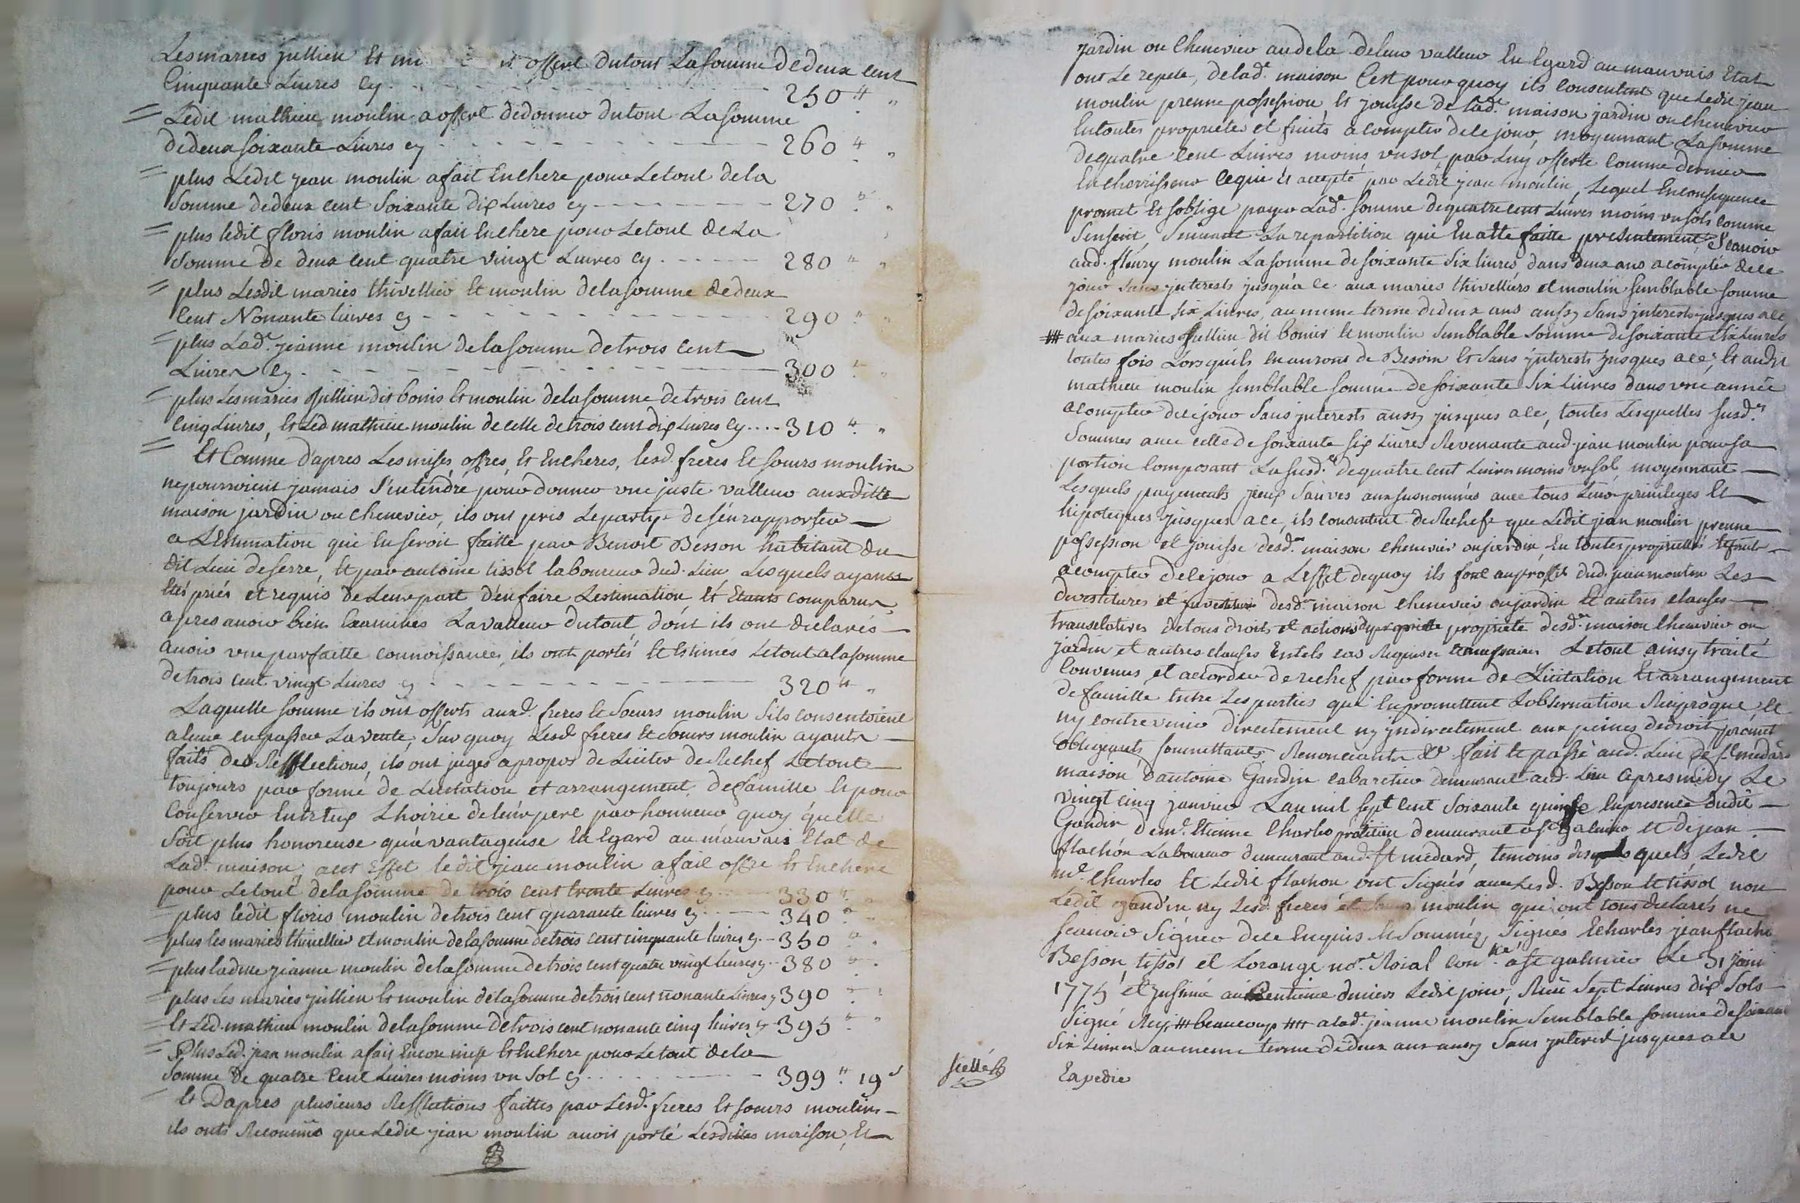 Les maries jullien et m offert du tout La somme de deux cent
Cinquante Livres cy 250 "
= Ledit mathieu moulin a offert de donner du tout La somme
de deux soixante Livres cy 260 "
= plus Ledit jean moulin a fait Enchere pour Le tout de la
somme de deux cent soixante dix Livres cy 270 "
= plus ledit floris moulin a fait Enchere pour Le tout de La
somme de deux cent quatre vingt Livres cy 280 "
= plus Lesdit maries thivellier et moulin de la somme de deux
cent Nonante livres cy 290 "
= plus Lade. jeanne moulin de la somme de trois cent
Livres cy 300 "
= plus Les maries jullien dit bonis et moulin de la somme de trois cent
Cinq Livres, et Led mathieu moulin de celle de trois cent dix Livres cy 310 "
= Et Comme d'apres Les mises, offres, et Encheres, lesd. freres et soeurs moulin
ne pourroient jamais s'entendre pour donner une juste valleur aux ditte
maison jardin ou Chenevier, ils ont pris Le party de s'en rapporter
a L'Estimation qui En seroit faitte par Benoit Besson habitant du
dit Lieu de serre, et par antoine tissot laboureur dud. Lieu Lesquels ayants
Etés priés et requis de Leur part d'en faire L'estimation et Etants comparus
apres avoir bien Examinés La valleur du tout dont ils ont déclarés
avoir une parfaitte connoissance, ils ont portés et Estimés Le tout a la somme
de trois cent vingt Livres cy 320 "
Laquelle somme ils ont offerts auxd. freres et soeurs moulin s'ils consentoient
a leur en passer La vente, sur quoy Lesd. freres et soeurs moulin ayants
faits des Refflections, ils ont jugés a propos de Liciter de Rechef Le tout
toujours par forme de Licitation et arrangement de famille et pour
Conserver Entr'eux L'hoirie de leur pere par honneur quoy qu'elle
soit plus honoreuse qu'avantageuse En Egard au mauvais Etat de
Lade. maison, a cet Effet ledit jean moulin a fait offre et Enchere
pour Le tout de la somme de trois cent trente Livres cy 330 "
= plus ledit floris moulin de trois cent quarante livres cy 340 "
= plus les maries thivellier et moulin de la somme de trois cent cinquante livres cy 350 "
= plus ladite jeanne moulin de la somme de trois cent quatre vingt livres cy 380 "
= plus Les maries jullien et moulin de la somme de trois cent nonante Livres cy 390 "
= Et Led. mathieu moulin de la somme de trois cent nonante cinq livres cy 395 "
= Plus Led. jean moulin a fait Encore mise et Enchere pour Le tout de la
somme de quatre cent Livres moins un sol cy 399 " 19 s
Et D'apres plusieurs Reflections faittes par Lesd. freres et soeurs moulin
ils onts Reconnus que Ledit jean moulin avoit porté Lesdittes maison, Et
jardin ou Chenevier au dela de leur valleur En Egard au mauvais Etat
ont Le repete, de lade. maison C'est pour quoy ils consentent que Ledit jean
moulin prenne possession et jouisse de lade. maison jardin ou chenevier
En toutes proprieté et fruits a compter de ce jour, moyennant La somme
de quatre cent Livres moins un sol par Luy offerte comme dernier
Encherisseur ce qui Est accepté par Ledit jean moulin, Lequel En consequence
promet Et s'oblige payer Lade. somme de quatre cent Livres moins un sols comme
s'ensuit, suivant La repartition qui En a été faitte presentement, Scavoir
aud. fleury moulin La somme de soixante six livres, dans deux ans a compter de ce
jour sans jnterests jusqu'a ce aux maries thivelliers et moulin semblable somme
de soixante six Livres, au meme terme de deux ans aussy sans jnterests jusques a ce
# aux maries jullien dit bonier et moulin semblable somme de soixante six Livres
toutes fois Lorsqu'ils En auront de Besoin et sans jnterests jusques a ce; Et audit
mathieu moulin semblable somme de soixante six Livres dans une année
a compter de ce jour sans jnterests aussy jusques a ce, toutes Lesquelles susd.es
sommes avec celle de soixante six Livres Revenante aud. jean moulin pour sa
portion Composant La susd.e de quatre cent Livres moins un sol, moyennant
Lesquels payements sauves aux susnommés avec tous Leur privileges Et
hipoteques jusques a ce, ils consentent de Rechefs que Ledit jean moulin prenne
possession et jouisse desd. maison chenevier ou jardin En toutes proprietés et fruits
a compter de ce jour a L'effet de quoy ils font au profit dud. jean moulin Les
devestitures et jnvestiture desd. maison chenevier ou jardin et autres clauses
translatives de tous droits et actions de propriete desd. maison Chenevier ou
jardin et autres clauses En tels cas Requises Le tout ainsy traité
Convenus, et accordés de rechef par forme de Licitation Et arrangement
de famille Entre Les parties qui En promettent L'observation Reciproque, Et
ny contrevenir directement ny jndirectement aux peines de droit par tout
obligeants, soumettants, Renonceants &c fait et passé aud. Lieu de st. medard
maison d'antoine Gandin cabaretier demeurant aud. Lieu apres midy Le
vingt cinq janvier L'an mil sept cent soixante quinze En presence dudit
Gandin de mr. Etienne Charles praticien demeurant a st. galmier et de jean
flachon Laboureur demeurant aud. st. medard, temoins desquels Ledit
mr. Charles Et Ledit flachon ont signés avec Lesd. Besson et tissot non
Ledit gandin ny Lesd. freres et soeurs moulin qui ont tous declarés ne
scavoir signer de ce Enquis et sommés, signés E charles jean flachon
Besson tissot et Lorange nore. Roial con.lé a st galmier Le 31 janr
1775, et jnsinué au centieme denier Ledit jour, Reçu sept Livres dix sols
signé Rey # beaucoup ## a lade. jeanne moulin semblable somme de soixante
six Livres au meme terme de deux ans aussy sans jnterest jusques a ce
scellé
Expedié